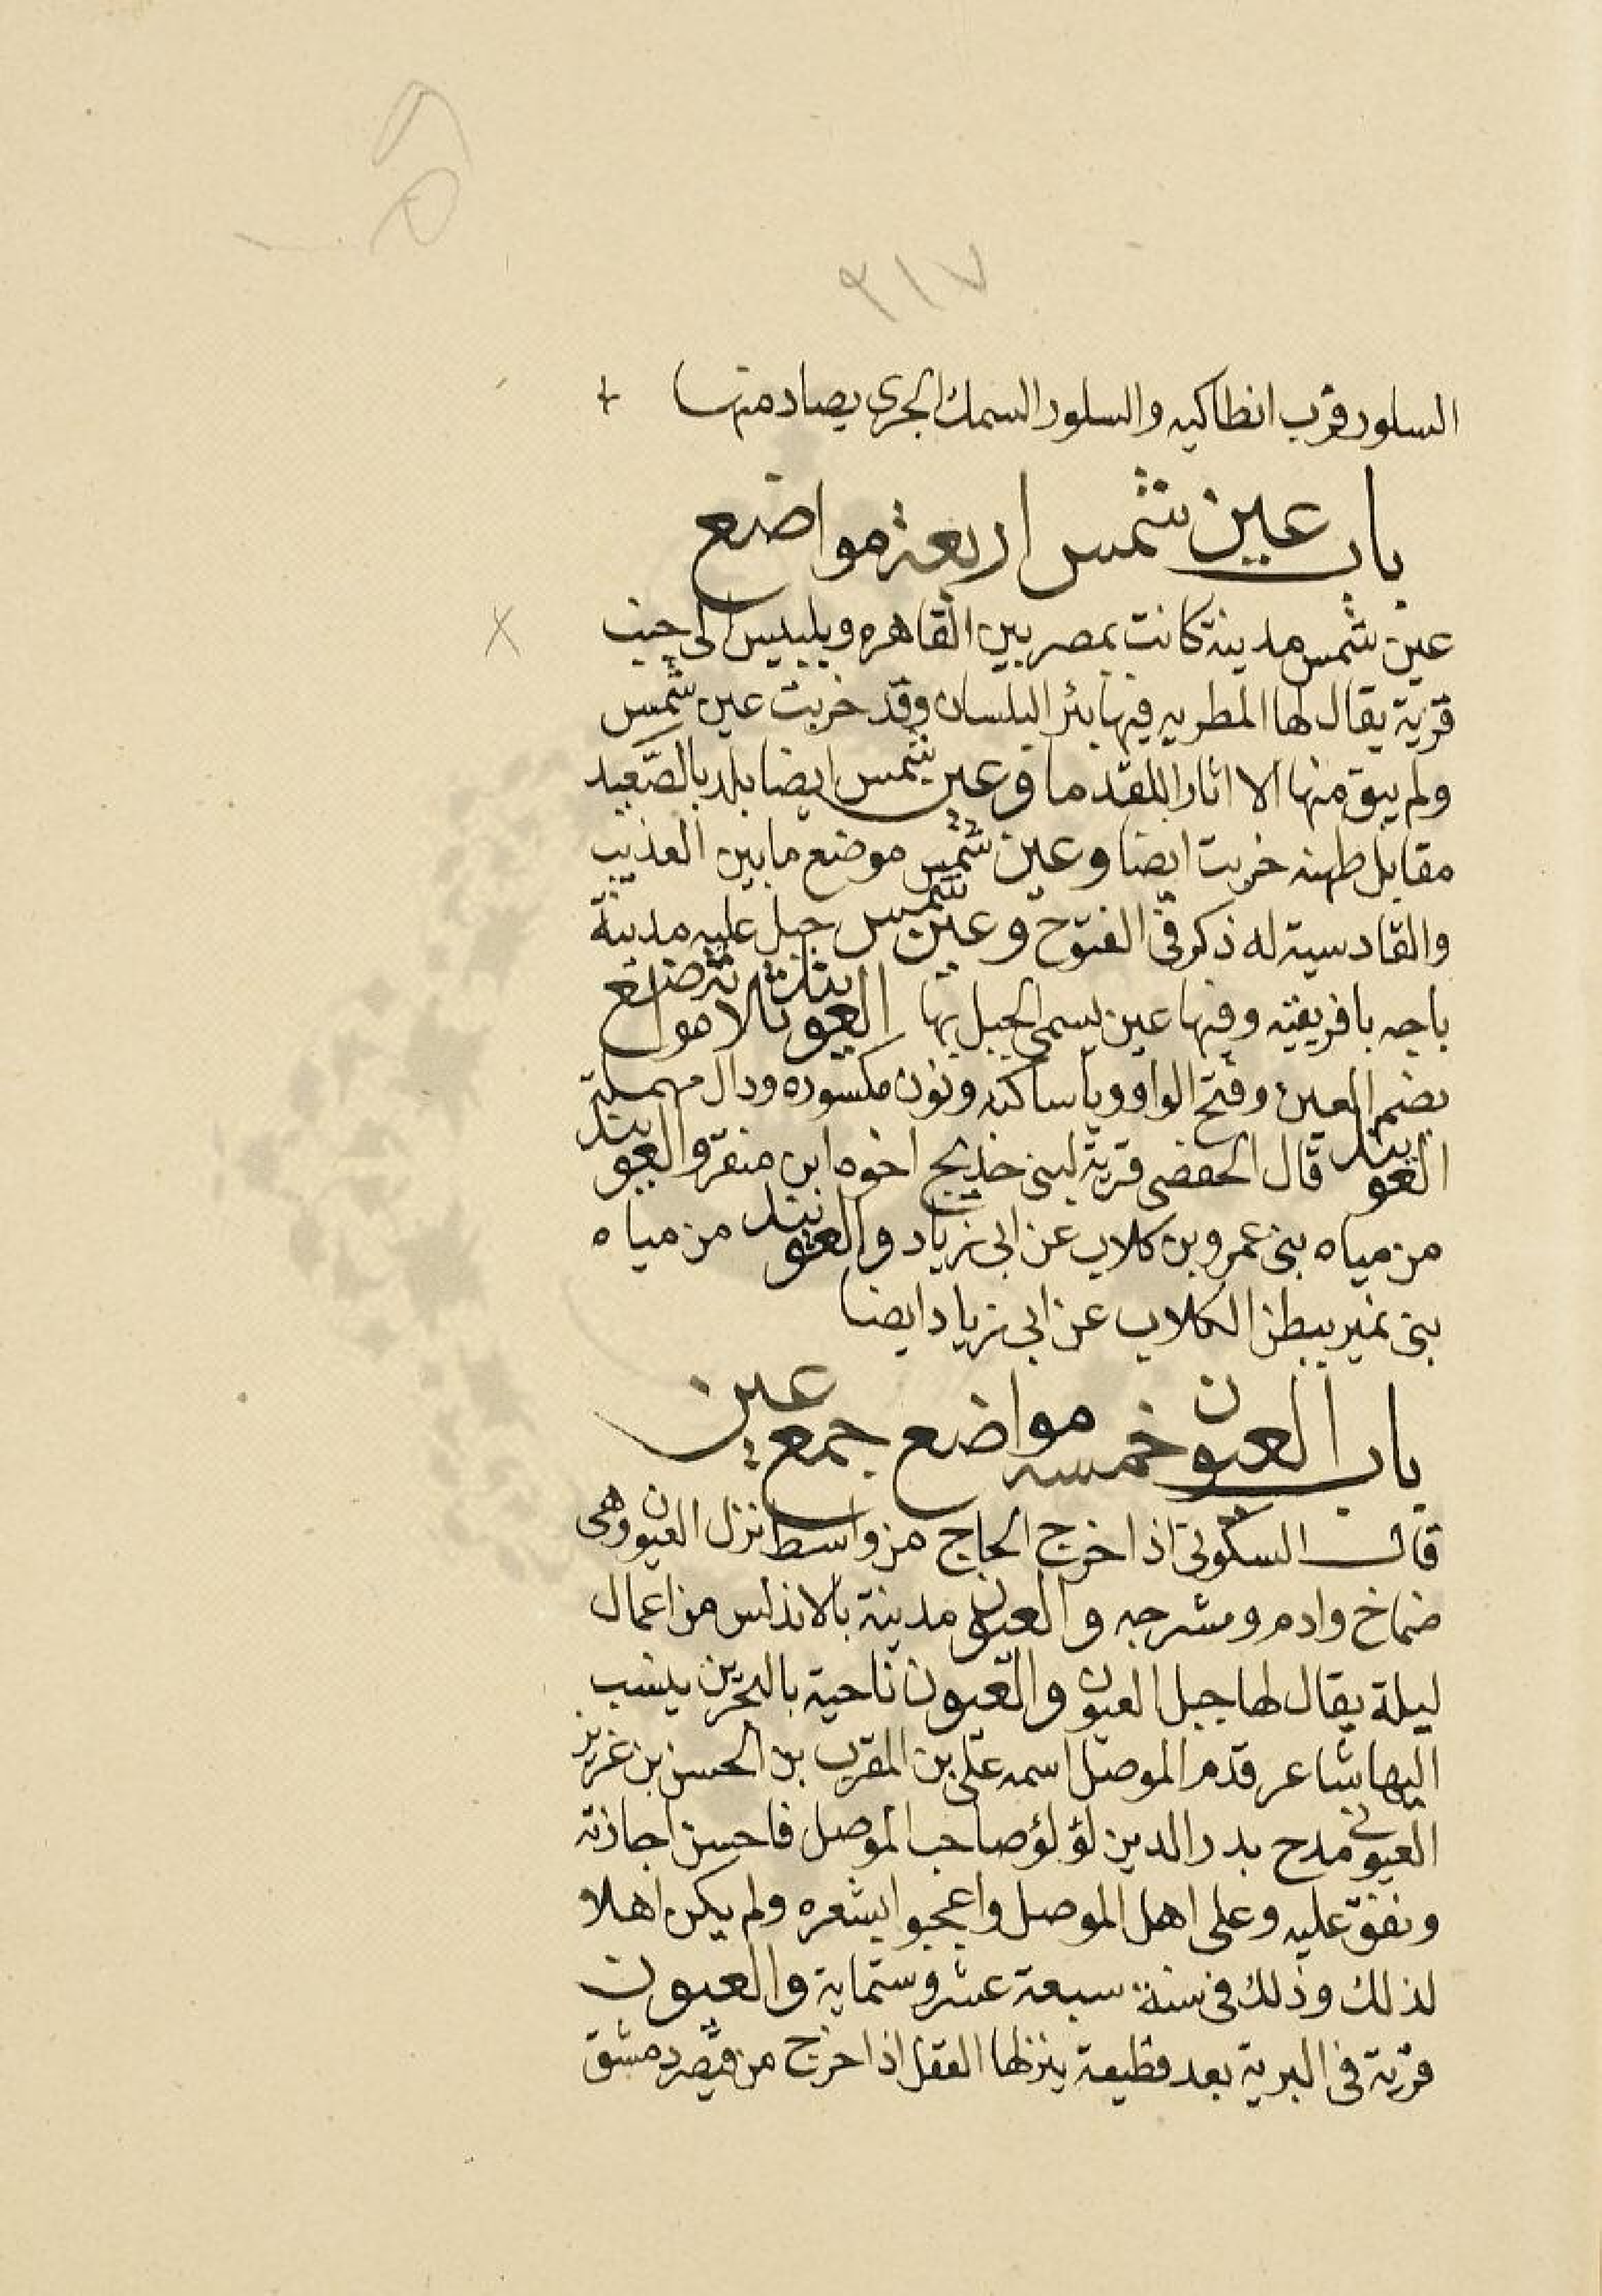 ٣١٧
السلور قرب انطاكيه والسلور السمك الجرى يصاد منها
باب عين شمس اربعة مواضع
عين شمس مدينة كانت بمصر بين القاهره وبلبيس الى جنب
قرية يقال لها المطريه فيها بئر البلسان وقد خربت عين شمس
ولم يبق منها الا اثار القدما وعين شمس ايضا بلد بالصعيد
مقابل طهنه خربت ايضا وعين شمس موضع ما بين العذيب
والقادسية له ذكر فى الفتوح وعين شمس جبل عليه مدينة
باجه بافريقيه وفيها عين يسمى الجبل بها العويند ثلاثة مواضع
بضم العين وفتح الواو ويا ساكنه ونون مكسوره ودال مهملة
العويند قال الحفصى قرية لبنى خديج اخوه ابن منقر والعويند
من مياه بنى عمرو بن كلاب عن ابى زياد والعويند من مياه
بنى نمير ببطن الكلاب عن ابى زياد ايضا
باب العيون خمسه مواضع جمع عين
قال السكونى اذا خرج الحاج من واسط نزل العيون وهى
ضماخ وادم ومشرجه والعيون مدينة بالاندلس من اعمال
ليلة يقال لها جبل العيون والعيون ناحية بالبحرين ينسب
اليها شاعر قدم الموصل اسمه على بن المقرب بن الحسن بن غرير
العيونى مدح بدر الدين لؤلؤ صاحب الموصل فاحسن اجازته
ونفق عليه وعلى اهل الموصل واعجبوا بشعره ولم يكن اهلا
لذلك وذلك فى سنة سبعة عشر وستماية والعيون
قرية فى البرية بعد قطيعة ينزلها القفل اذا خرج من دمشق